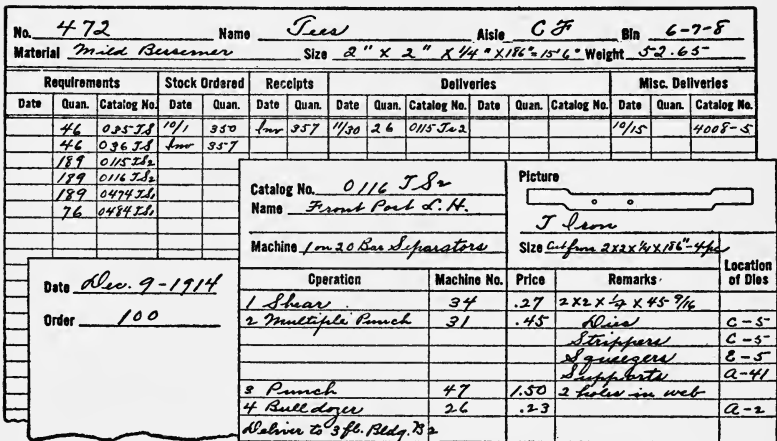 No. 472 Name Tees Aisle CF Bin 6-7-8
Material Mild Bessemer Size 2" X 2" X 1/4" X 186" = 15'6" Weight 52.65
Requirements Stock Ordered Receipts Deliveries Misc. Deliveries
Date Quan. Catalog No. Date Quan. Date Quan. Date Quan. Catalog No. Date Quan. Catalog No. Date Quan. Catalog No.
46 035 TS 10/1 350 Inv 357 11/30 26 0115 Ts2 10/15 4008-5
46 036 TS Inv 357
189 0115 TS2
189 0116 TS2
189 0474 TS1
76 0484 TS1
Catalog No. 0116 TS2
Name Front Post L.H.
Machine 1 on 20 Bar Separators
Picture
T Iron
Size Cut from 2x2x1/4x186"-4pc
Operation Machine No. Price Remarks Location of Dies
1 Shear 34 .27 2X2 X 1/4 X 45 9/16
2 Multiple Punch 31 .45 Dies C-5
Strippers C-5
Squeegers E-5
Supports A-41
3 Punch 47 1.50 2 holes in web
4 Bulldozer 26 .23 A-2
Deliver to 3 fl. Bldg. B2
Date Dec. 9-1914
Order 100